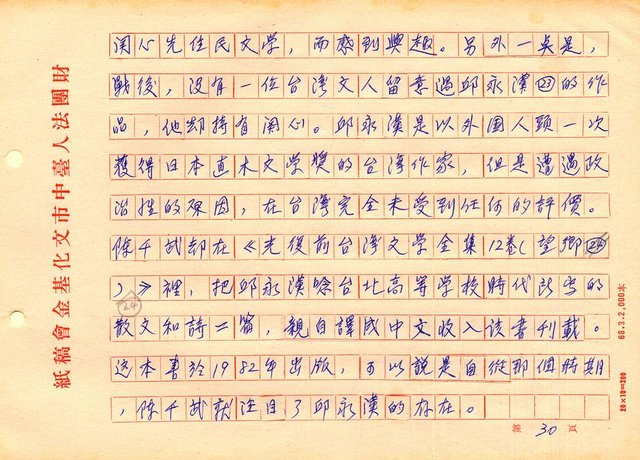 関心先住民文学，而感到興趣。另外一奌是，
戰後，沒有一位台湾文人留意過邱永漢㉓的作
品，他却持有関心。邱永漢是以外国人頭一次
獲得日本直木文学獎的台湾作家，但是遭遇政
治性的原因，在台湾完全未受到任何的評價。
陳千武却在《光復前台湾文学全集12卷(望鄉㉔
)》裡，把邱永漢唸台北高等学校時代所写的
散文和詩二篇，親自譯成中文收入该書刊載。
这本書於1982年出版，可以說是自從那個時期
，陳千武就注目了邱永漢的存在。
24
第 30 頁
財團法人臺中市文化基金會稿紙
68.3.2,000本
20×10=200